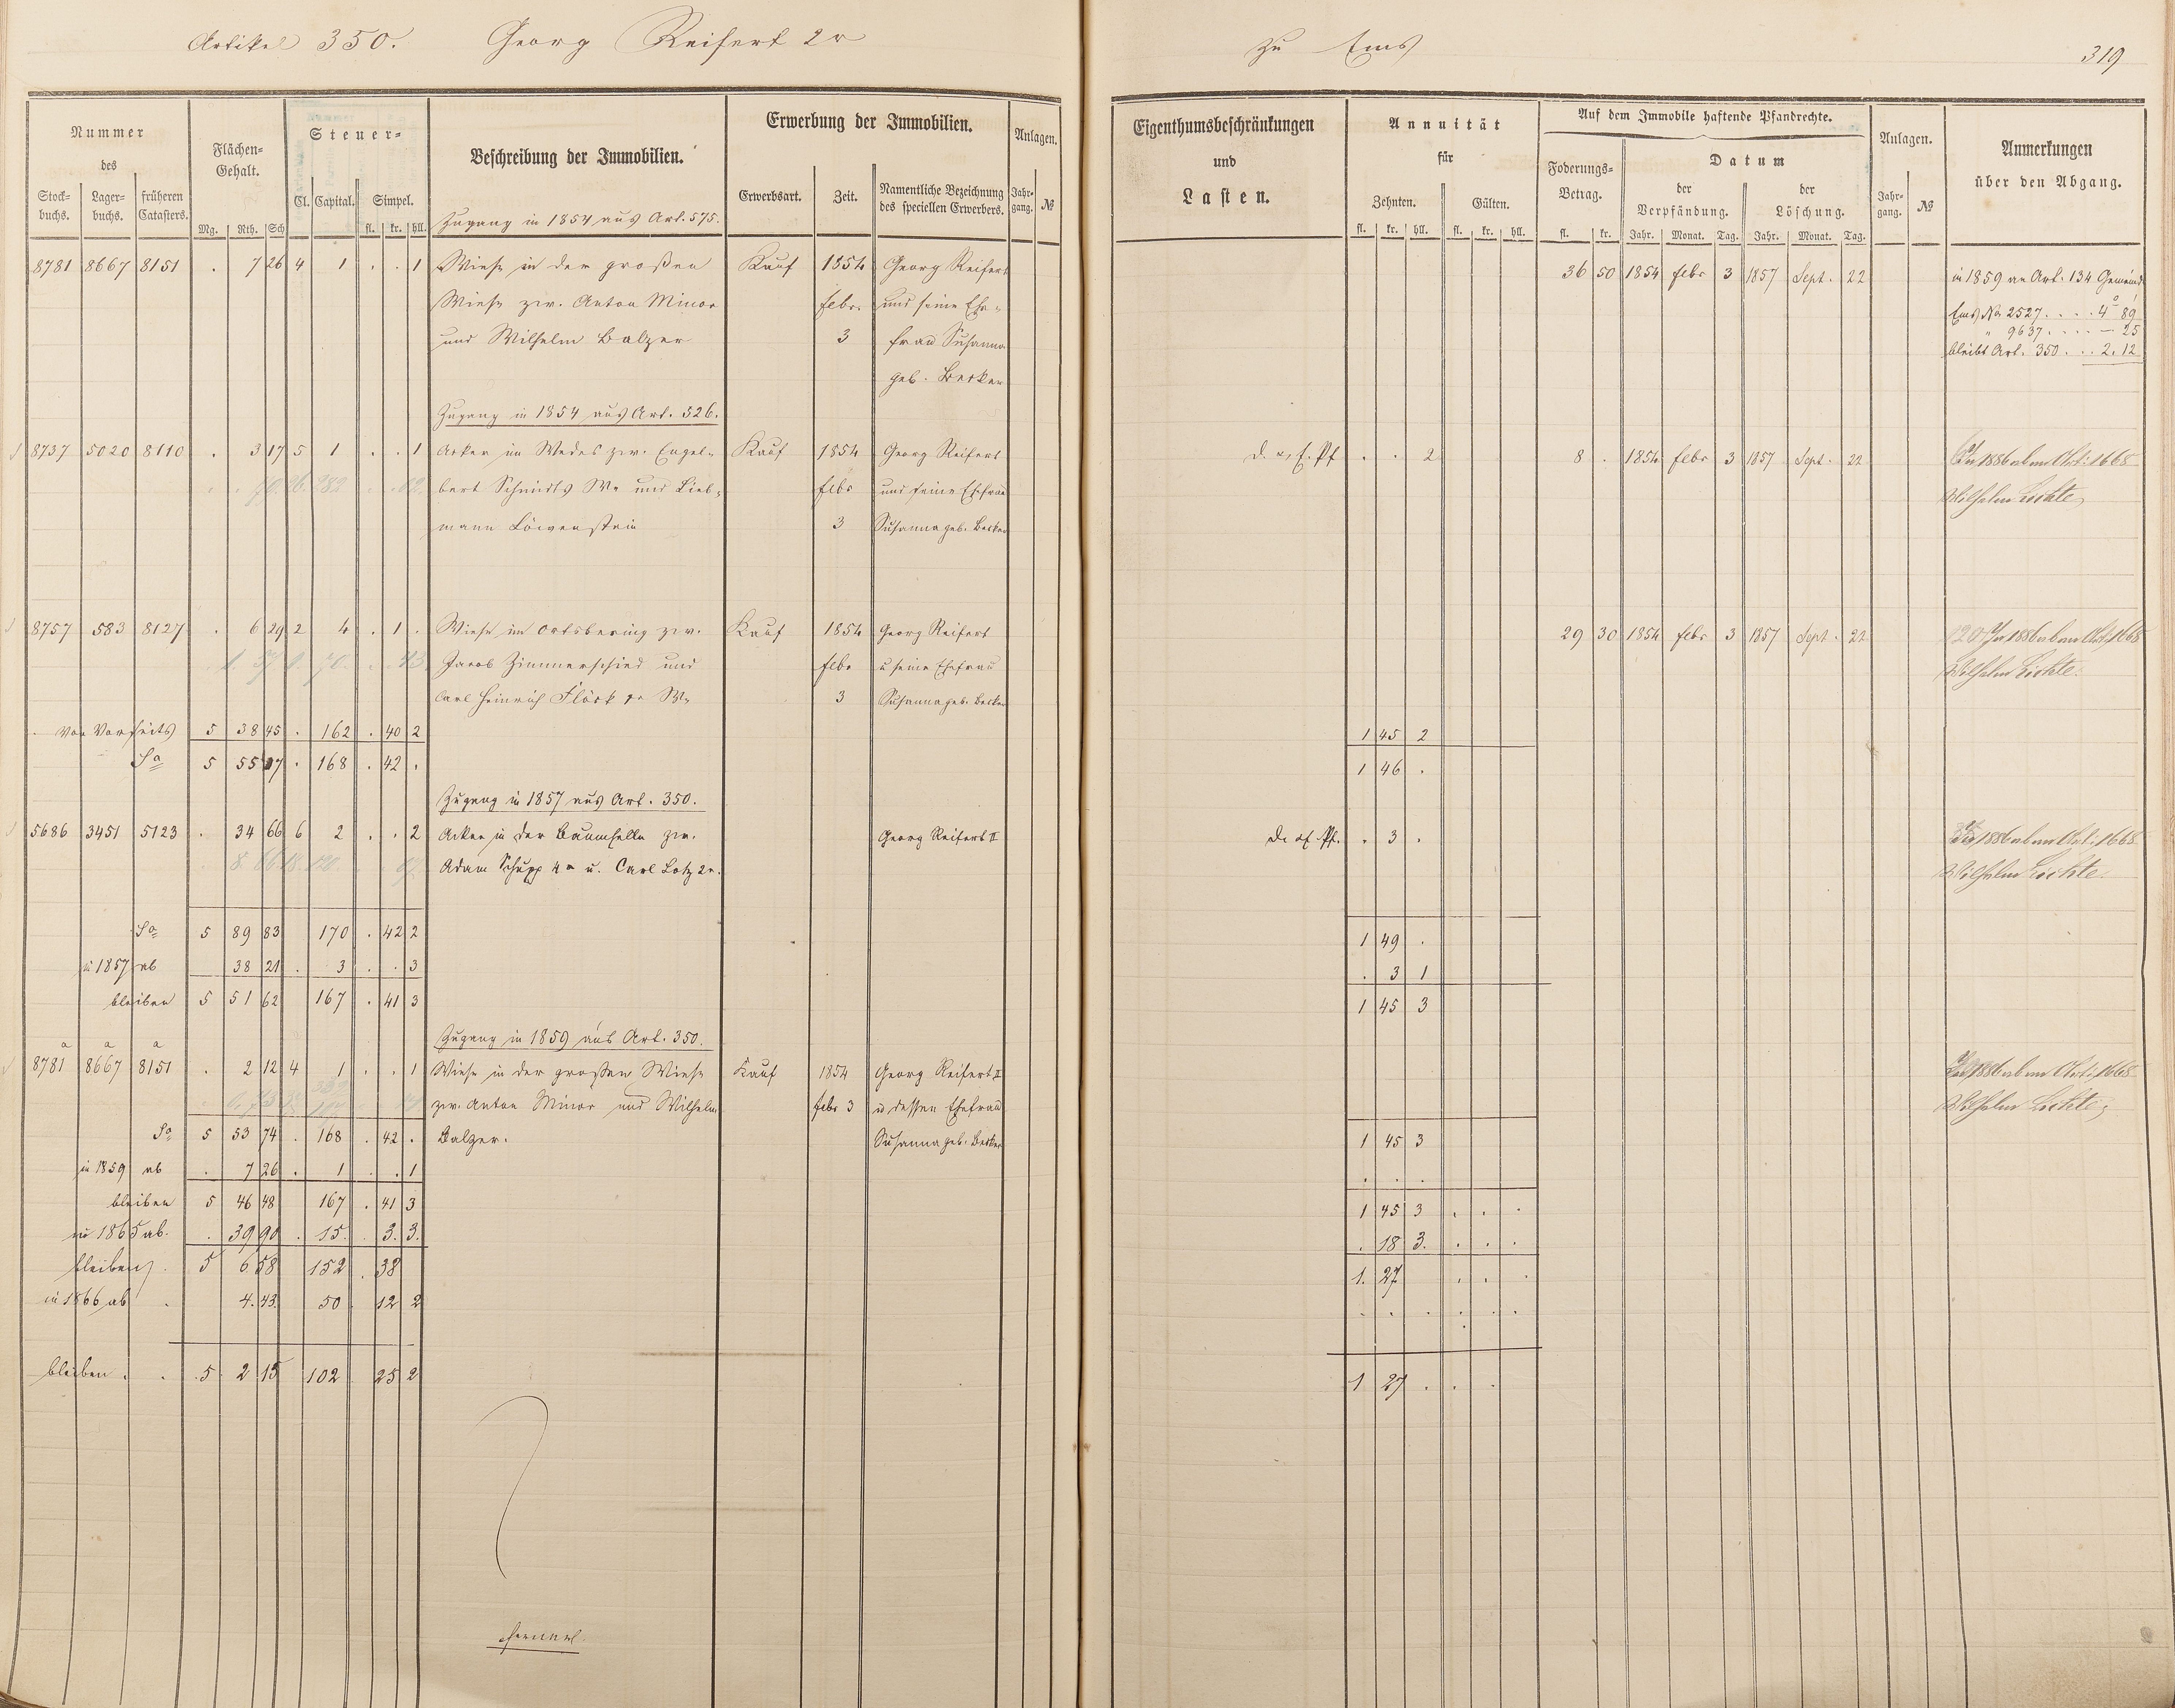 Artikel 350. Georg Reifert 2r zu Ems 319
Nummer des
Stock-buchs. Lager-buchs. früheren Catasters.
Flächen-Gehalt.
Mg. Rth. Sch
Steuer-
Cl. Capital. Simpel.
fl. kr. hll.
Beschreibung der Immobilien.
Erwerbung der Immobilien.
Erwerbsart. Zeit. Namentliche Bezeichnung des speciellen Erwerbers.
Anlagen.
Jahr-gang. №
Eigenthumsbeschränkungen
und
Lasten.
Annuität
für
Zehnten. Gülten.
fl. kr. hll. fl. kr. hll.
Auf dem Immobile haftende Pfandrechte.
Foderungs-Betrag.
fl. kr.
Datum
der Verpfändung. der Löschung.
Jahr. Monat. Tag. Jahr. Monat. Tag.
Anlagen.
Jahr-gang. №
Anmerkungen
über den Abgang.
Zugang in 1854 aus Art. 575.
8781 8667 8151 . 7 26 4 1 . . 1 Wiese in der großen Kauf 1854 Georg Reifert 36 50 1854 febr 3 1857 Sept. 22 in 1859 an Art. 134 Gemeinde
Wiese zw. Anton Minor febr. und seine Ehe- Ems No 2527 . . . . 4 89
und Wilhelm Balzer 3 frau Susanna " 9637 . . . . — 25
geb. Becker bleibt Art. 350 . . . 2. 12
Zugang in 1854 aus Art. 526.
8737 5020 8110 . 3 17 5 1 . . 1 Acker im Wedes zw. Engel- Kauf 1854 Georg Reifert . . 2 8 . 1854 febr 3 1857 Sept. 22 In 1886 ab an Art: 1668
bert Schmidts We und Lieb- febr und seine Ehefrau Wilhelm Lichte
mann Löwenstein 3 Susanna geb. Becker
8757 583 8127 . 6 29 2 4 . 1 . Wiese im Ortsbering zw. Kauf 1854 Georg Reifert 29 30 1854 febr 3 1857 Sept. 22 In 1886 ab an Art: 1668
Jacob Zimmerschied und febr u seine Ehefrau Wilhelm Lichte.
Carl Heinrich Flöck 1r We 3 Susanna geb. Becker
Von Vorseits 5 38 45 . 162 . 40 2 1 45 2
Sa 5 55 17 . 168 . 42 . 1 46 .
Zugang in 1857 aus Art. 350.
5686 3451 5123 . 34 66 6 2 . . 2 Acker in der Baumhelle zw. Georg Reifert II . 3 . In 1886 ab an Art: 1668
Adam Schupp 4r u. Carl Lotz 2r. Wilhelm Lichte.
Sa 5 89 83 170 . 42 2 1 49 .
in 1857 ab 38 21 . 3 . . 3 . 3 1
bleiben 5 51 62 167 . 41 3 1 45 3
Zugang in 1859 aus Art. 350.
a a a
8781 8667 8151 . 2 12 4 1 . . 1 Wiese in der großen Wiese Kauf 1854 Georg Reifert II In 1886 ab an Art: 1668
zw. Anton Minor und Wilhelm febr 3 u dessen Ehefrau Wilhelm Lichte
Sa 5 53 74 . 168 . 42 . Balzer. Susanna geb. Becker 1 45 3
in 1859 ab . 7 26 . 1 . . 1 . . .
bleiben 5 46 48 167 . 41 3 1 45 3 . . .
in 1865 ab. . 39 90 . 15. 3. 3. . 18 3. . . .
bleiben . 5 6 58 152 . 38 1. 27 . . .
in 1866 ab . 4. 43. 50 12 2 . . . . . .
bleiben . . 5 2 15 102 25 2 1 27 . . .